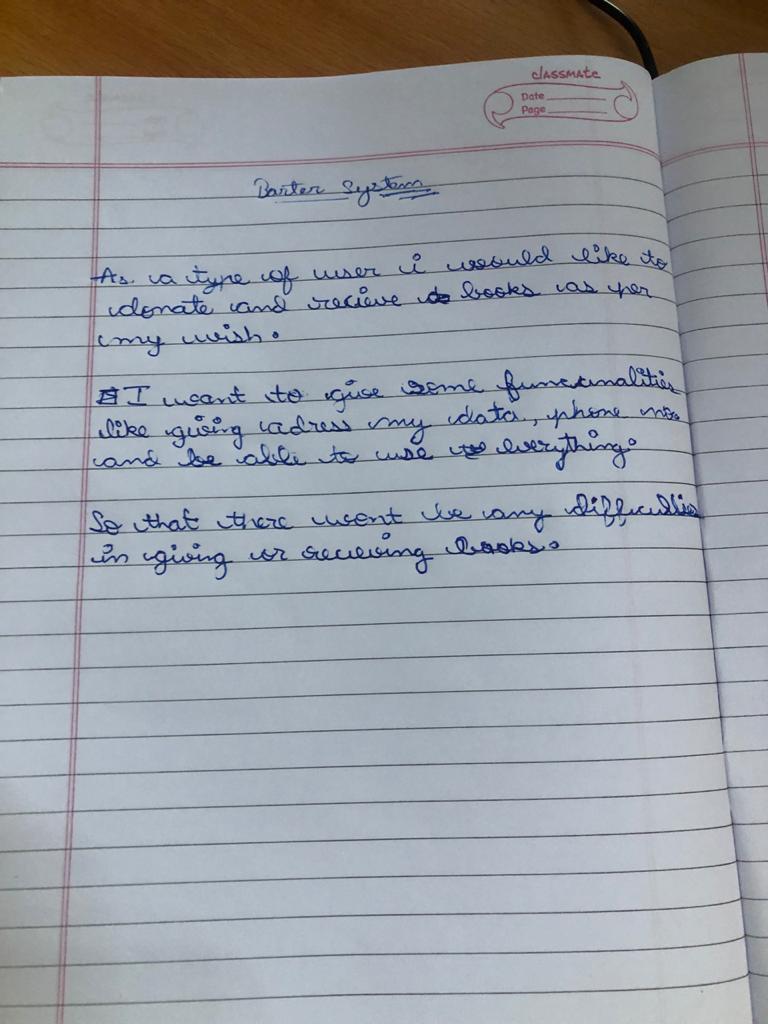 classmate
Date
Page
Barter System
As a type of user i would like to
donate and recieve books as per
my wish.
I want to give some funcunalities
like giving adress my data, phone no
and be able to use everything.
So that there wont be any difficulties
in giving or recieving books.